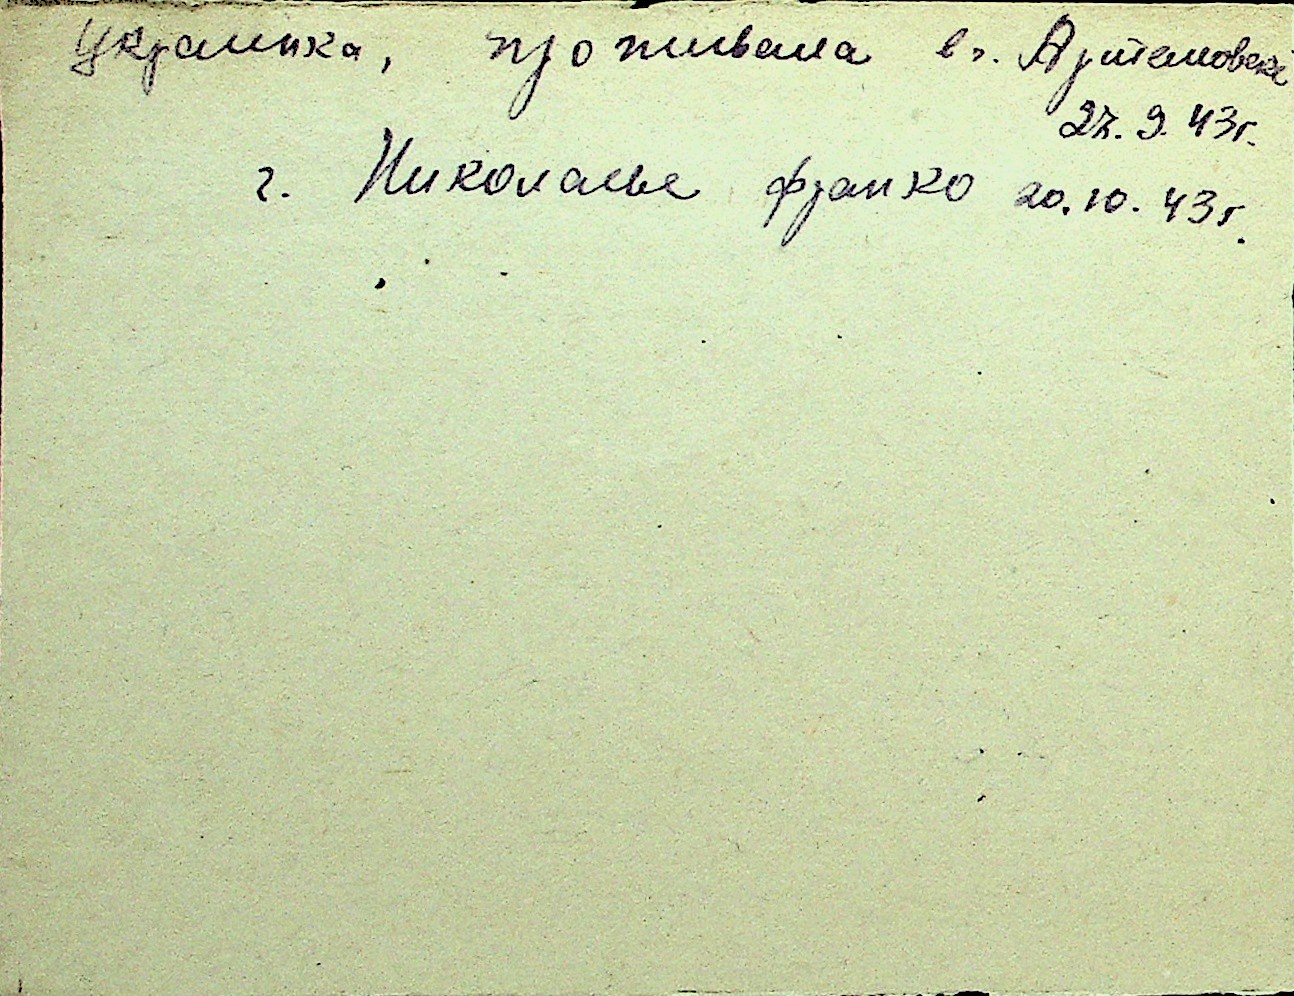 Украинка, проживала в г. Артемовске
27. 9. 43г.
г. Николаеве франко 20. 10. 43г.